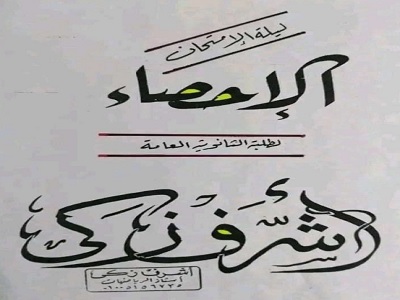 ليلة الإمتحان
الإحصاء
لطلبة الثانوية العامة
أشرف زكى
أشرف زكى
أستاذ الرياضيات